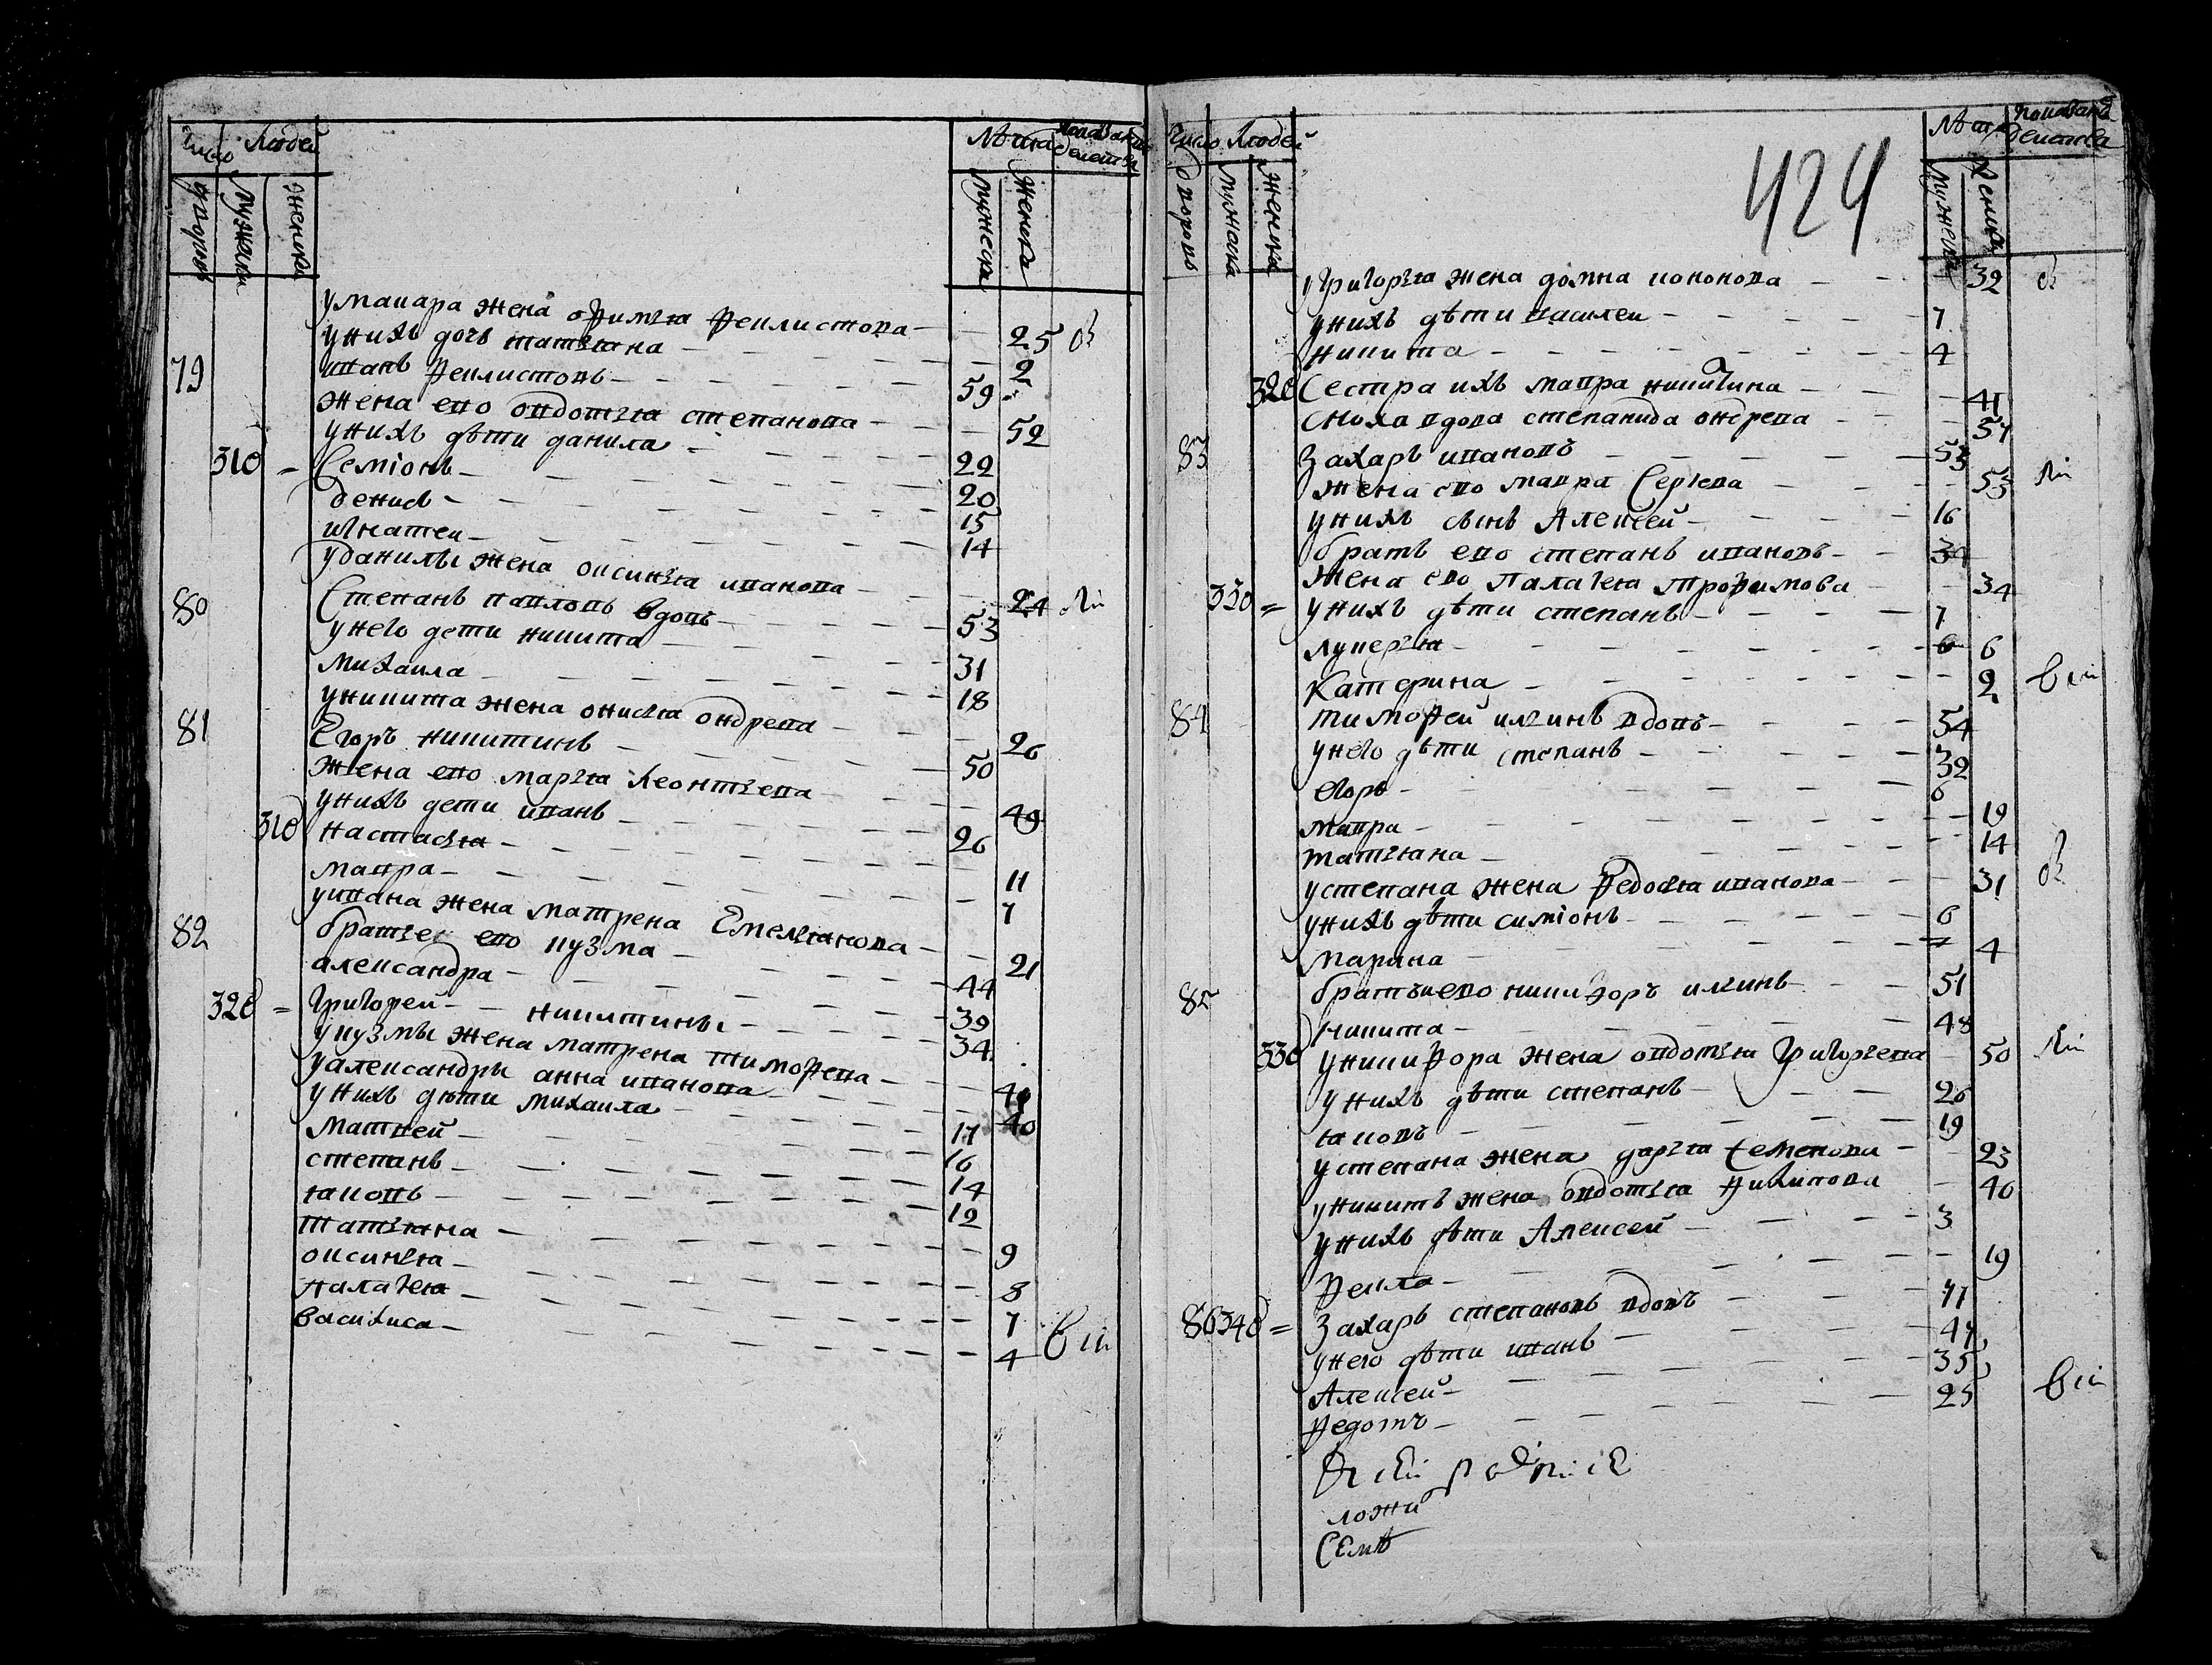 Число Людей
Лѣта
показание действа
дворовъ
мужеска
женска
мужеска
женска
умакара жена офимья феклистова 25
унихъ дочь татьяна 2
79 иванъ феклистовъ 59
жена ево овдотья степанова 52
унихъ дѣти данила 22
310 Семіонъ 20
денисъ 15
игнатеи 14
уданилы жена оксинья иванова 24
80 Степанъ павловъ вдовъ 53
унего дети никита 31
михаила 18
уникита жена онисья ондрева 26
81 Егоръ никитинъ 50
жена ево марья леонтьева 49
унихъ дети иванъ 26
310 настасья 11
мавра 7
уивана жена матрена Емельянова 21
82 братьеи ево кузма 44
александра 39
320 григореи никитины 34
укузмы жена матрена тимофева
уалександры анна иванова 40
унихъ дѣти михаила 17
матвей 16
степанъ 14
яковъ 12
татьяна 9
оксинья 8
палагея 7
василиса 4
424
Число Людей
Лѣта
показание действа
дворовъ
мужеска
женска
мужеска
женска
угригорья жена домна кононова 32
унихъ дѣти василеи 7
никита 4
320 Сестра ихъ мавра никитина 41
сноха вдова степанида ондрева 57
83 Захаръ ивановъ 53
жена ево мавра Сергева 53
унихъ сынъ Алексей 16
братъ ево степанъ ивановъ 39
жена ево палагея трофимова 34
330 унихъ дѣти степанъ 7
лукерья 6
Катерина 2
84 тимофей илинъ вдовъ 54
унего дѣти степанъ 32
егоръ 6
мавра 19
татьяна 14
устепана жена федосья иванова 31
унихъ дѣти симіонъ 6
марина 4
85 братьи ево никифоръ илинъ 51
никита 48
330 уникифора жена овдотья григорьева 50
унихъ дѣти степанъ 26
яковъ 19
устепана жена дарья семенова 23
уникитъ жена овдотья филипова 40
унихъ дѣти Алексей 3
фекла 19
86 340 Захаръ степановъ вдовъ 77
унего дѣти иванъ 47
Алексей 35
федотъ 25